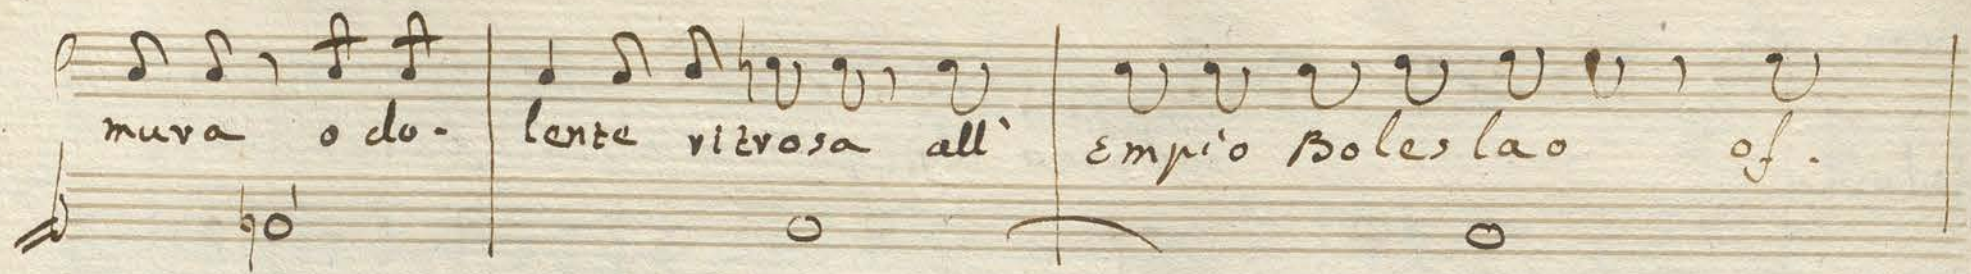 mura o do- lente ritrosa all' Empio Boleslao of.